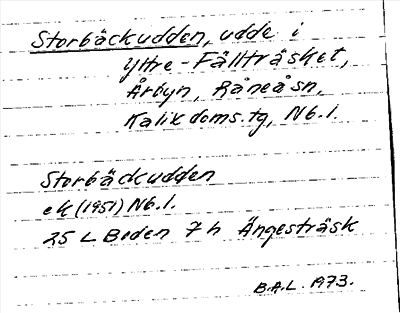 Storbäckudden, udde i
Yttre-Fällträsket,
Årbyn, Råneå sn,
Kalix doms.tg, Nb.l.
Storbäckudden
ek (1951) Nb.l.
25 L Boden 7 h Ängesträsk
B.A.L. 1973.